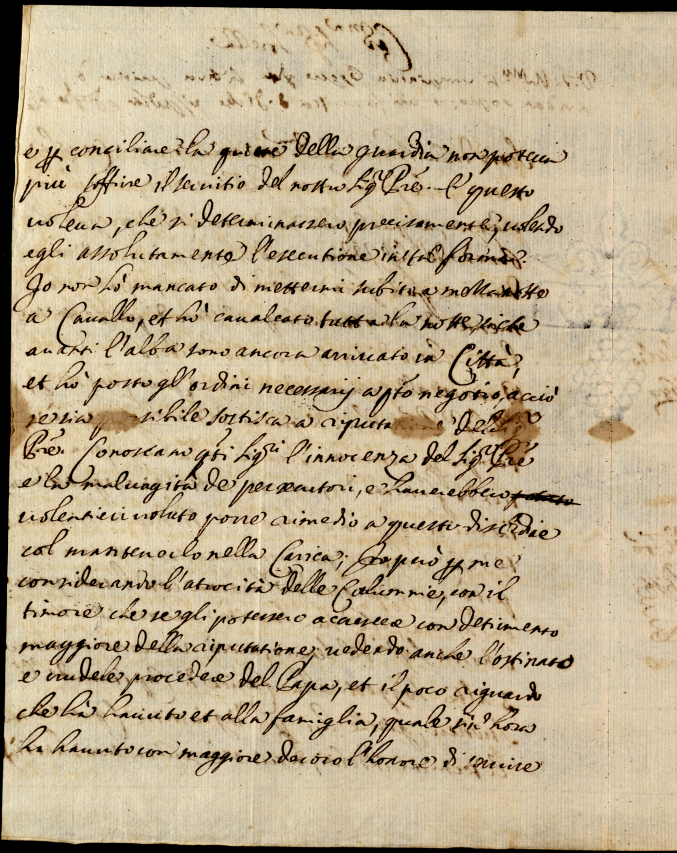 e p conciliare la quiete della guardia non poteua
più soffrire il seruitio del nostro Sigr Pre. e questo
uoleua, che si determinassero precisamente, uolendo
egli assolutamente l'esecutione in tal forma.
Io non hò mancato di mettermi subito a mezza notte
a Cauallo, et hò caualcato tutta la notte, sì che
auanti l'alba sono ancora arriuato in Città,
et hò posto gl'ordini necessarij a qto negotio, acciò
se sia possibile sortisca a riputatione del Sigr
Pre. Conoscano qti Sigri l'innocenza del Sigr Pre
e la maluagità de persecutori, e hauerebbero
uolentieri uoluto porre rimedio a queste discordie
col mantenerlo nella Carica; Io però p me
considerando l'atrocità delle Calunnie, con il
timore che se gli potessero accrescere con detrimento
maggiore della riputatione, uedendo anche l'ostinato
e crudele procedere del Papa, et il poco riguardo
che hà hauuto et alla famiglia, quale sin hora
ha hauuto con maggiore decoro l'honore di seruire